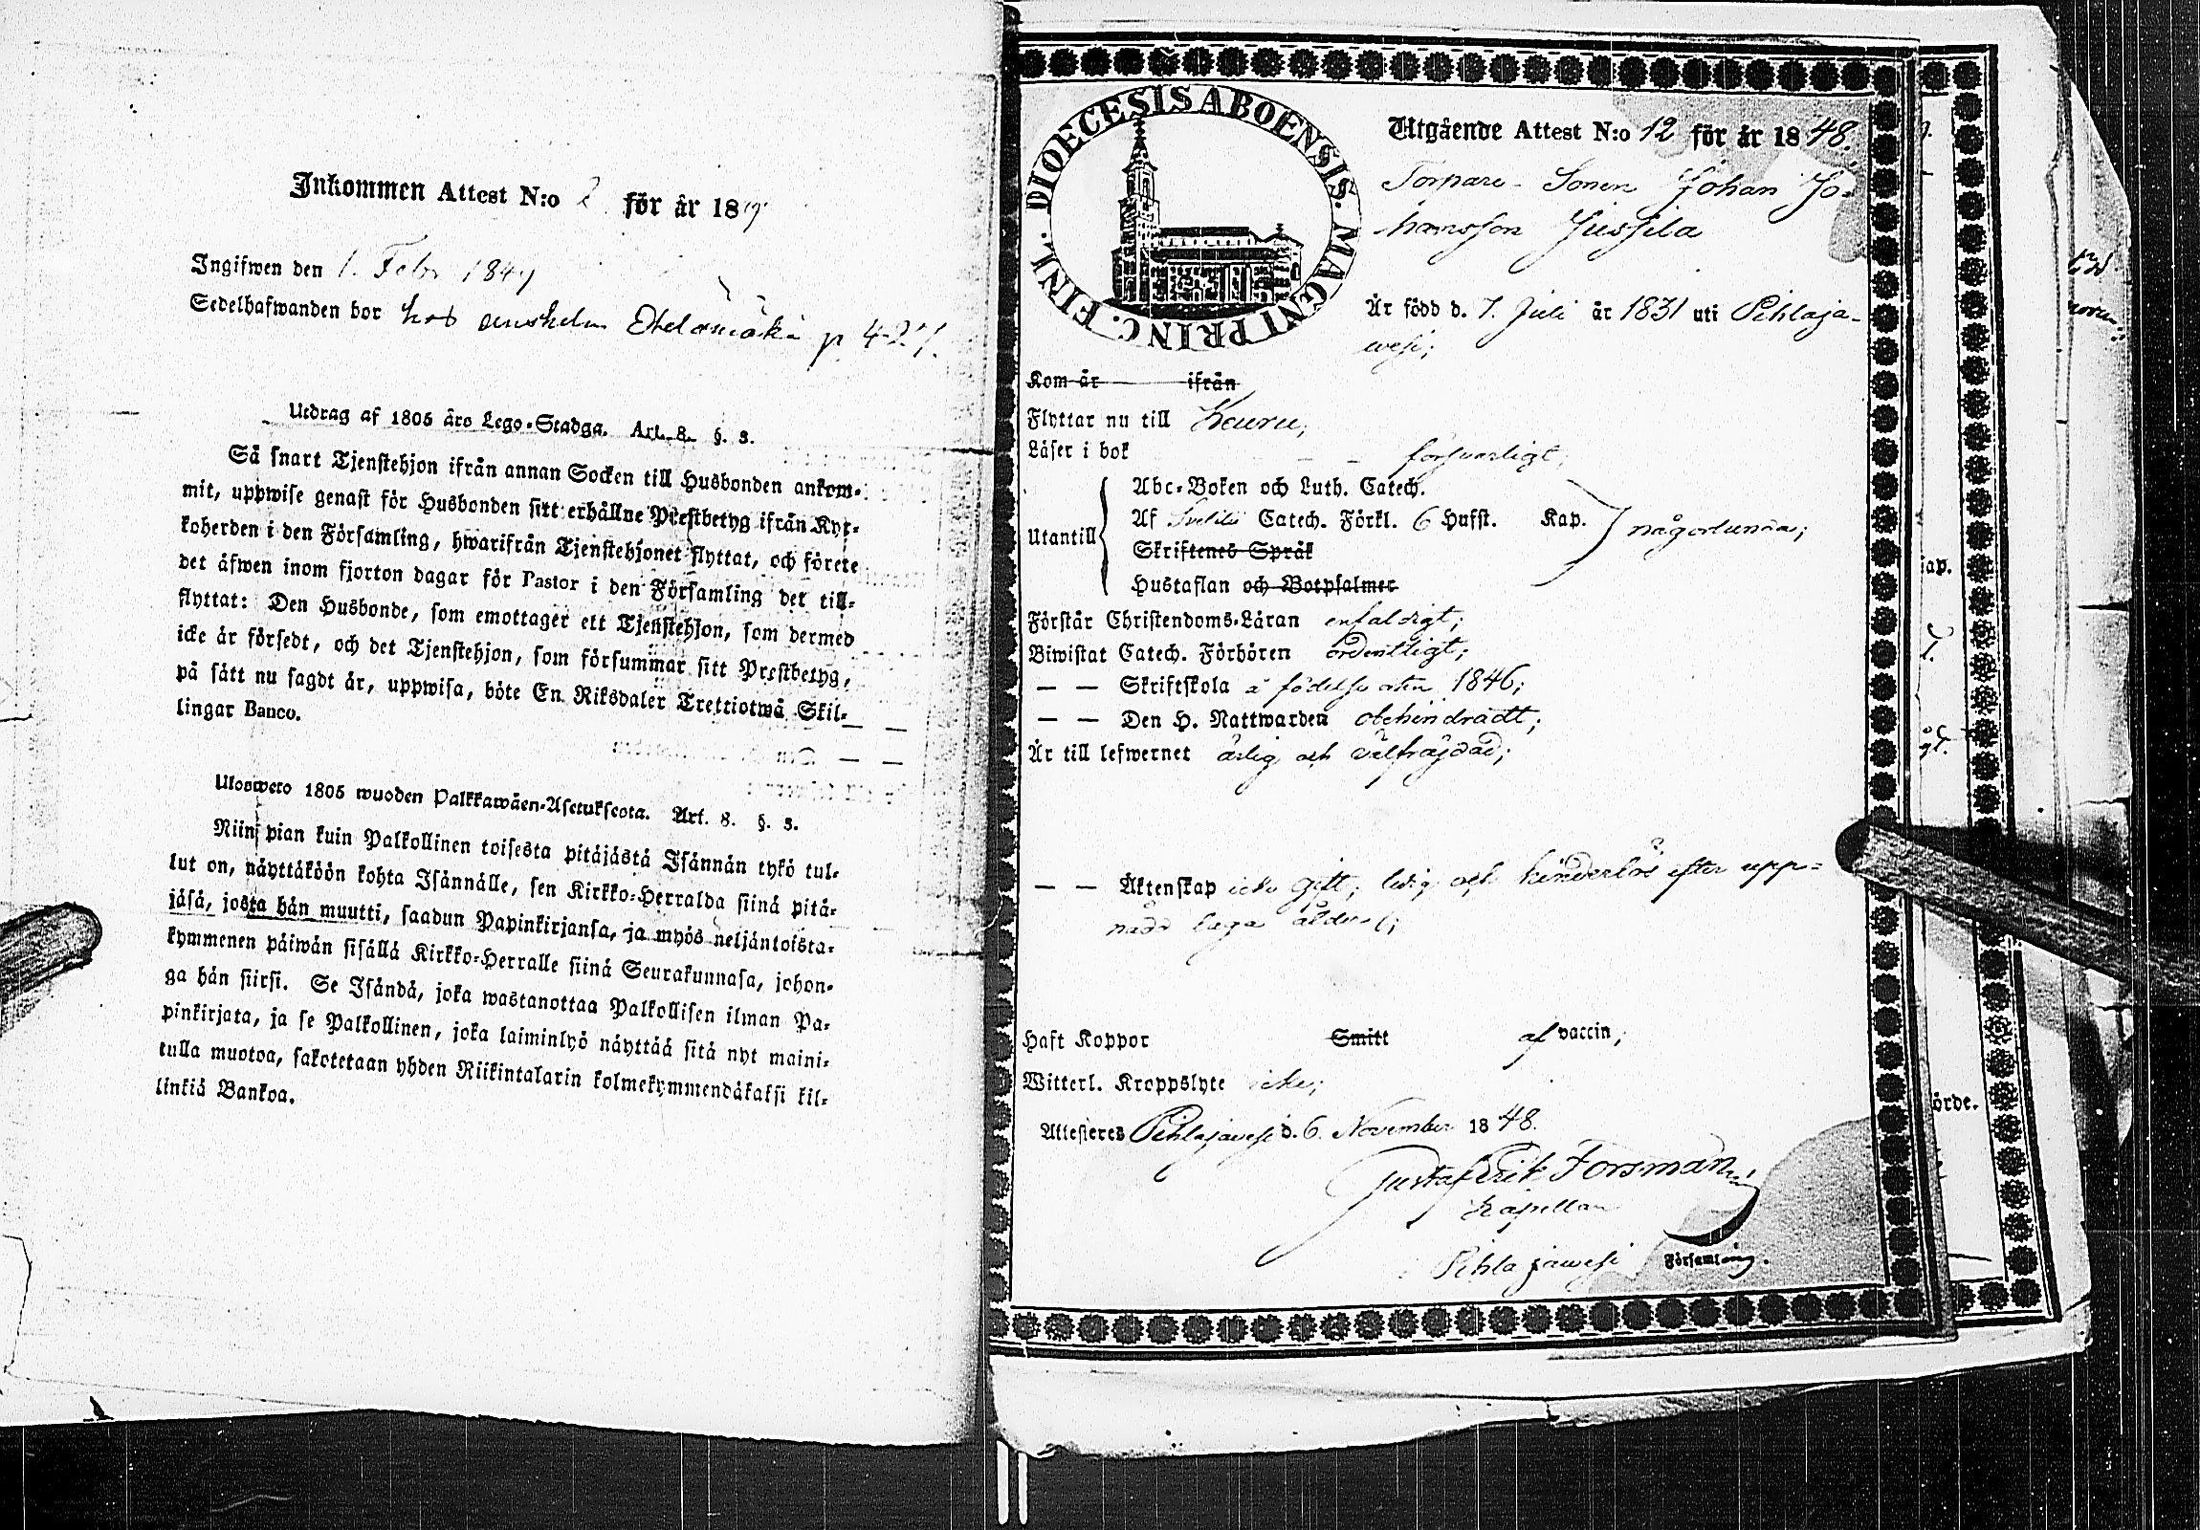 Inkommen Attest N:o 2 för år 1849
Ingifwen den 1. Febr 1849
Sedelhafwanden bor hos p 427.
Utdrag af 1805 års Lego-Stadga. Art. 8. §. 3.
Så snart Tjenstehjon ifrån annan Socken till Husbonden ankom-
mit, uppwise genast för Husbonden sitt erhållne Prestbetyg ifrån Kyr-
koherden i den Församling, hwarifrån Tjenstehjonet flyttat, och förete
det äfwen inom fjorton dagar för Pastor i den Församling det till-
flyttat: Den Husbonde, som emottager ett Tjenstehjon, som dermed
icke är försedt, och det Tjenstehjon, som försummar sitt Prestbetyg,
på sätt nu sagdt är, uppwisa, böte En Riksdaler Trettiotwå Skil-
lingar Banco.
Ulosweto 1805 wuoden Palkkawäen-Asetuksesta. Art. 8. §. 3.
Niin pian kuin Palkollinen toisesta pitäjästä Isännän tykö tul-
lut on, näyttäköön kohta Isännälle, sen Kirkko-Herralda siinä pitä-
jäsä, josta hän muutti, saadun Papinkirjansa, ja myös neljäntoista-
kymmenen päiwän sisällä Kirkko-Herralle siinä Seurakunnasa, johon-
ga hän siirsi. Se Isändä, joka wastanottaa Palkollisen ilman Pa-
pinkirjata, ja se Palkollinen, joka laiminlyö näyttää sitä nyt maini-
tulla muotoa, sakotetaan yhden Riikintalarin kolmekymmendäkaksi kil-
linkiä Bankoa.
DIOECESIS ABOENSIS. MAGNI PRINC. FINL.
Utgående Attest N:o 12 för år 1848.
Torpare-Sonen Johan Jo-
hansson Jussila
Är född d. 7. Juli år 1831 uti Pihlaja-
wesi;
Kom år ifrån
Flyttar nu till Keuru;
Läser i bok försvarligt;
Utantill
Abc-Boken och Luth. Catech.
Af Svebilii Catech. Förkl. 6 Hufst. Kap.
någorlunda;
Skriftenes Språk
Hustaflan och Botpsalmer
Förstår Christendoms-Läran enfaldigt;
Biwistat Catech. Förhören ordentligt;
— — Skriftskola å födelse orten 1846;
— — Den H. Nattwarden obehindradt;
Är till lefwernet ärlig och välfräjdad;
— — Äktenskap icke gift; ledig och hinderlös efter upp-
nådd laga ålder;
Haft Koppor Smitt af vaccin;
Witterl. Kroppslyte icke;
Attesteres Pihlajawesi d. 6. November 1848.
Gustaf Erik Forsman
Kapellan
Pihlajawesi Församling.